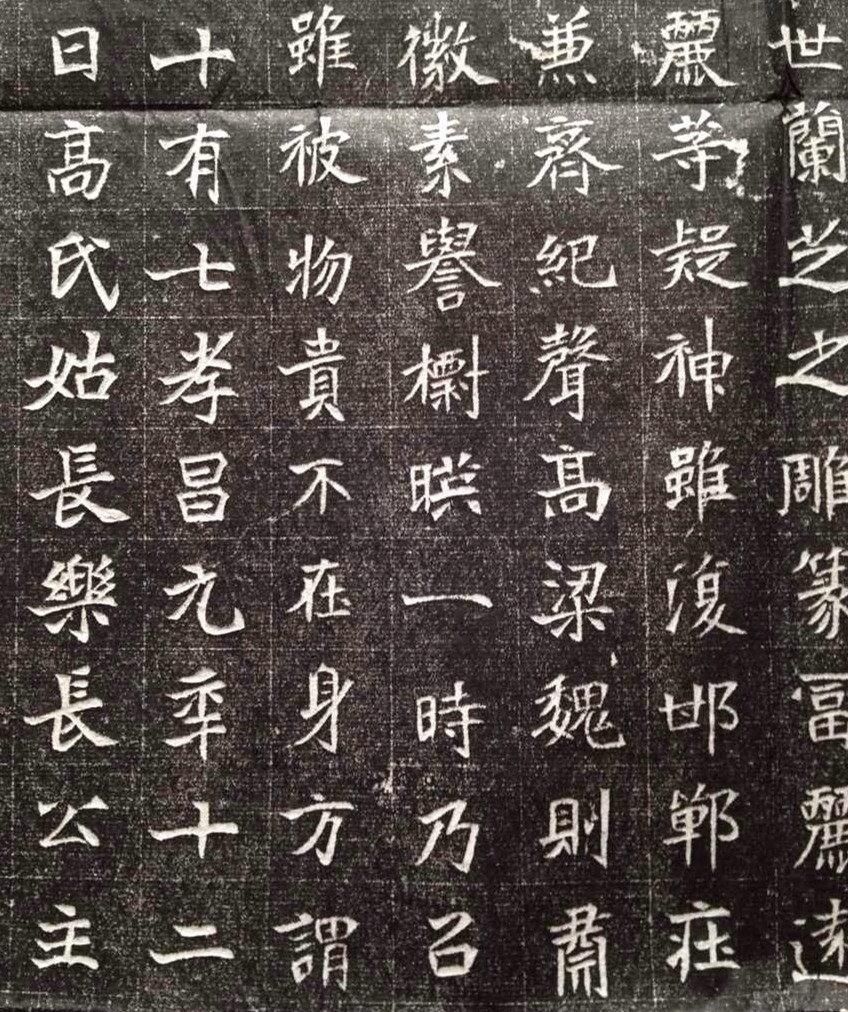 世蘭芝之雕篆冨麗遠
麗等疑神雖復邯鄲庄
兼齊紀聲髙梁魏則肅
徽素譽暎一時乃召
雖被物貴不在身方謂
十有七孝昌元年十二
日髙氏姑長樂長公主